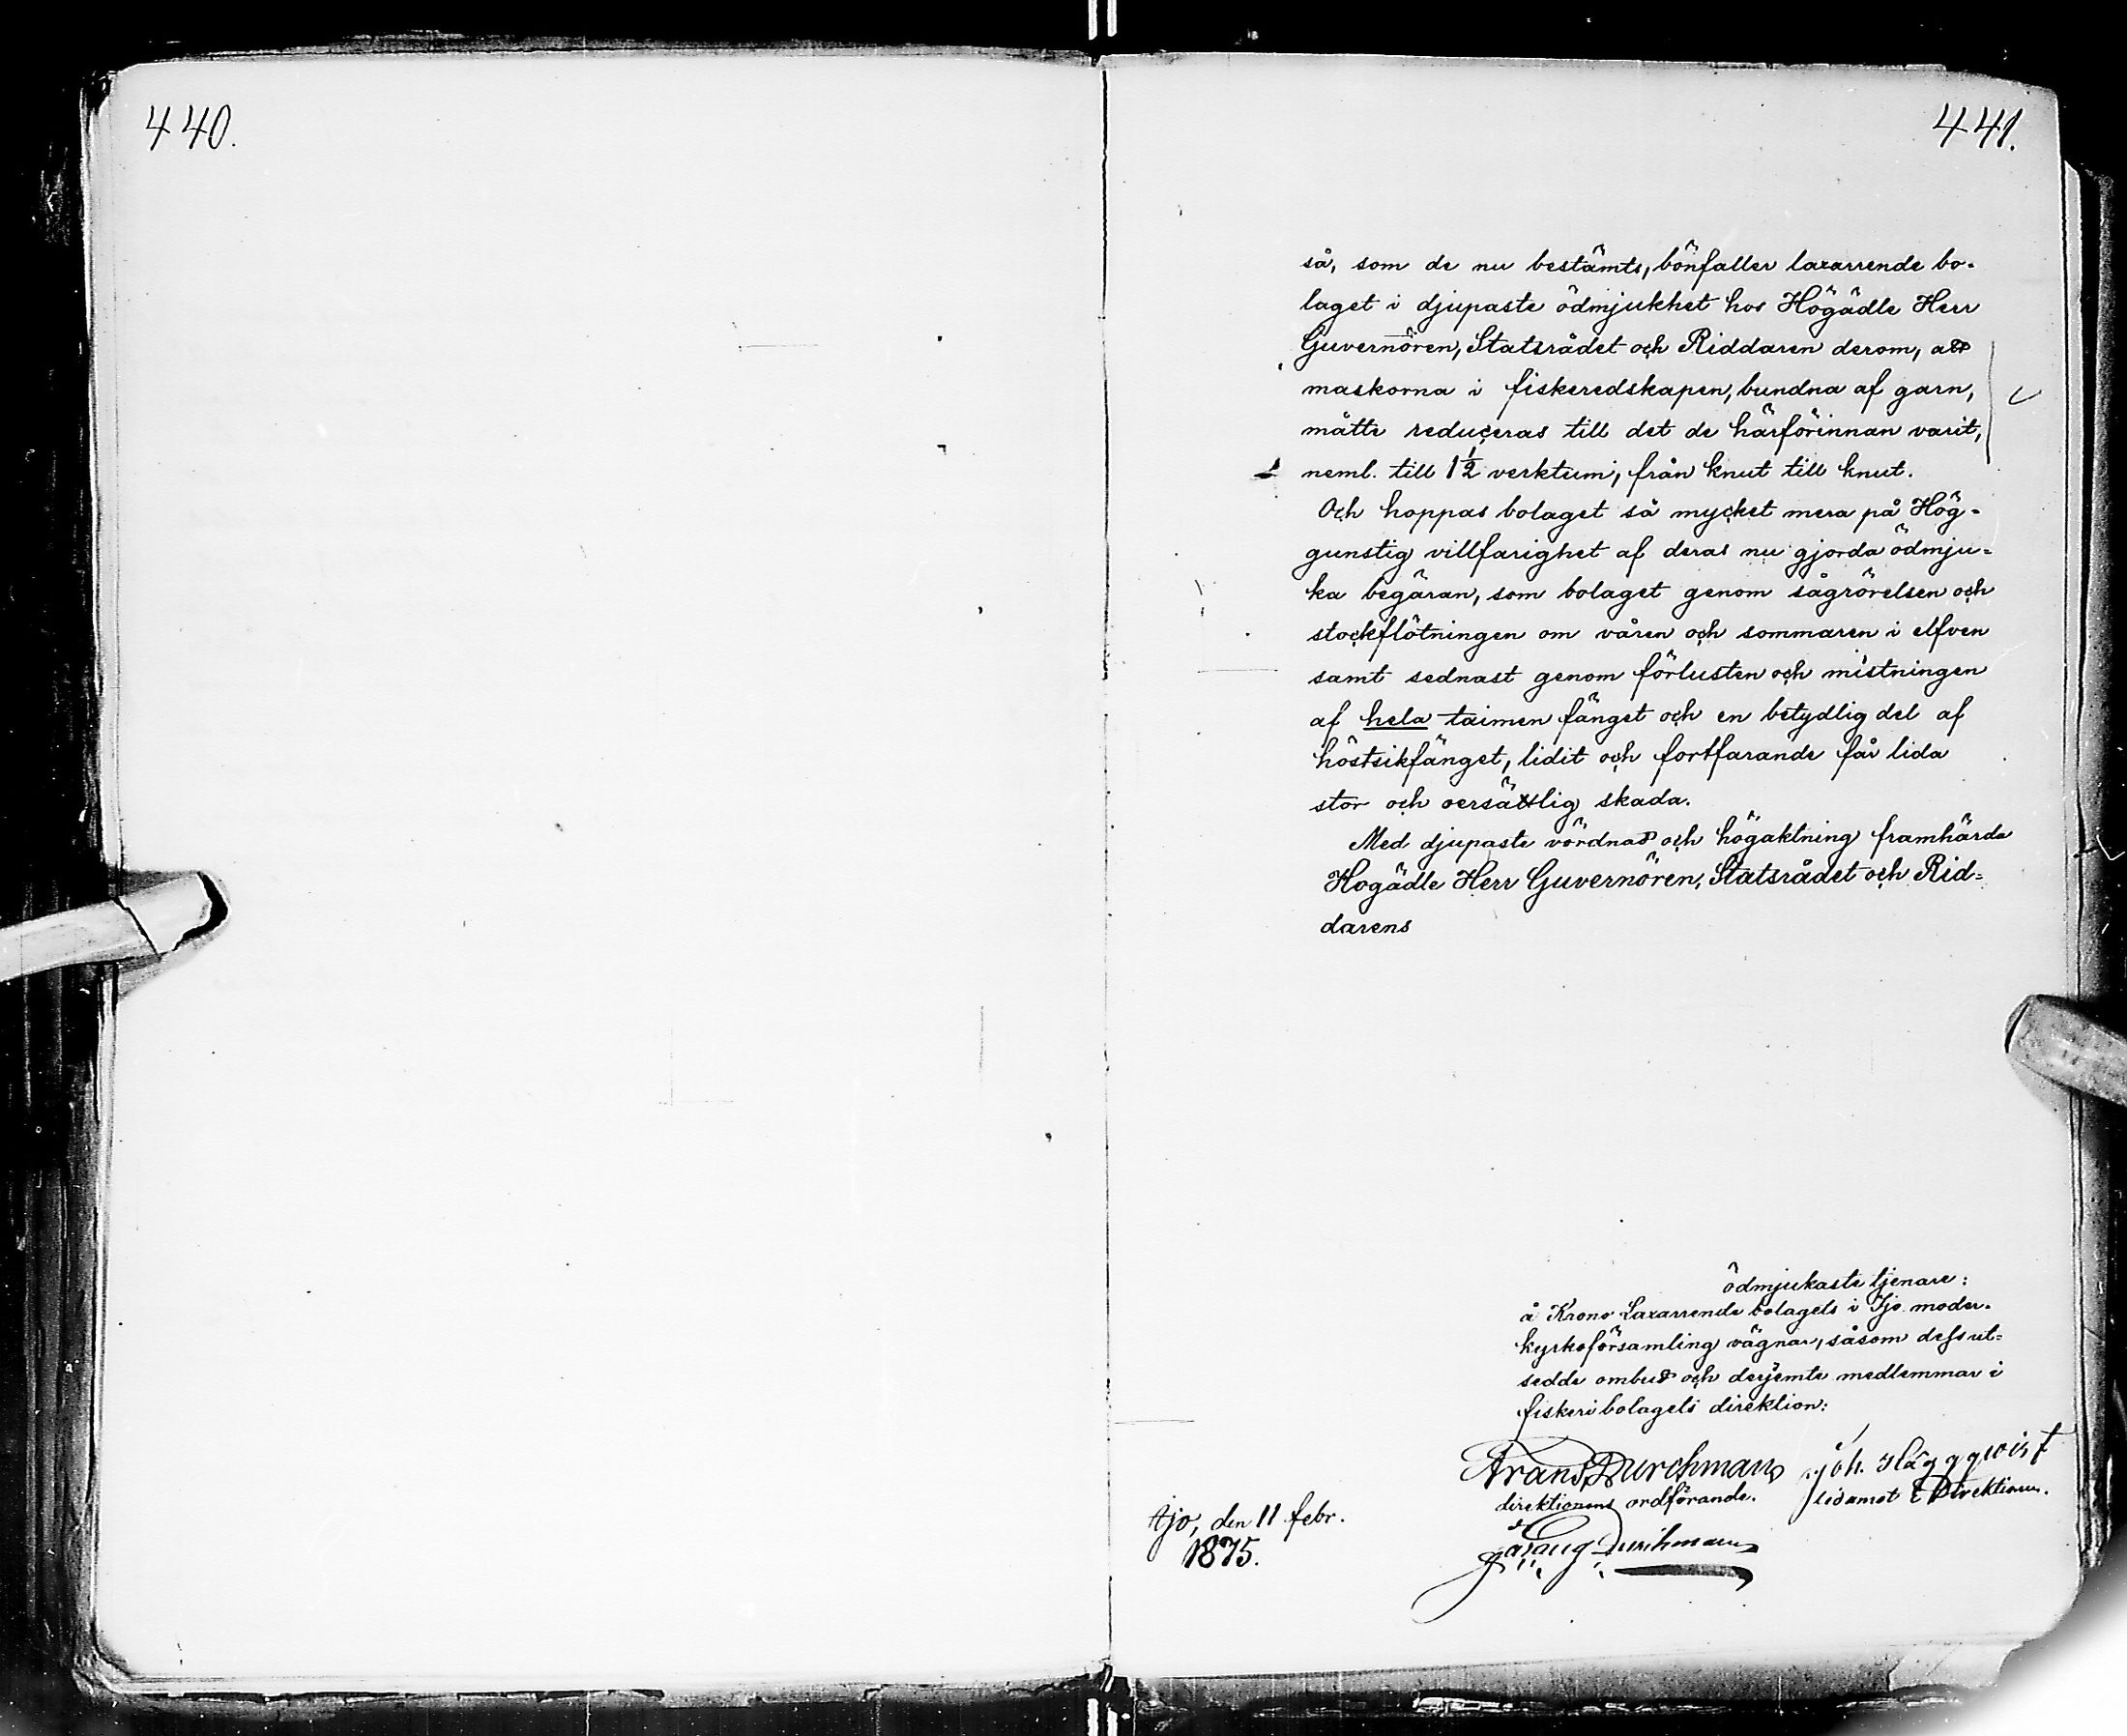 440.
441.
så, som de nu bestämts, bönfaller laxarrende bo-
laget i djupaste ödmjukhet hos Högädle Herr
Guvernören, Statsrådet och Riddaren derom, att
maskorna i fiskeredskapen, bundna af garn,
måtte reduceras till det de härförinnan varit,
neml. till 1½ verktum, från knut till knut.
Och hoppas bolaget så mycket mera på Hög-
gunstig villfarighet af deras nu gjorda ödmju=
ka begäran, som bolaget genom sågrörelsen och
stockflötningen om våren och sommaren i elfven
samt sednast genom förlusten och mistningen
af hela taimen fånget och en betydlig del af
höstsikfånget, lidit och fortfarande får lida
stor och oersättlig skada.
Med djupaste vördnad och högaktning framhärda
Hogädle Herr Guvernören, Statsrådet och Rid=
darens
ödmjukaste tjenare:
å Krono Laxarrende bolagets i Ijo moder-
kyrkoförsamling vägnar, såsom dess ut=
sedde ombud och derjemte medlemmar i
fiskeribolagets direktion:
Frans Durchman Joh. Häggqwist
direktionens ordförande. ledamot i Direktionen.
Ijo, den 11 febr.
1875.
Durchman